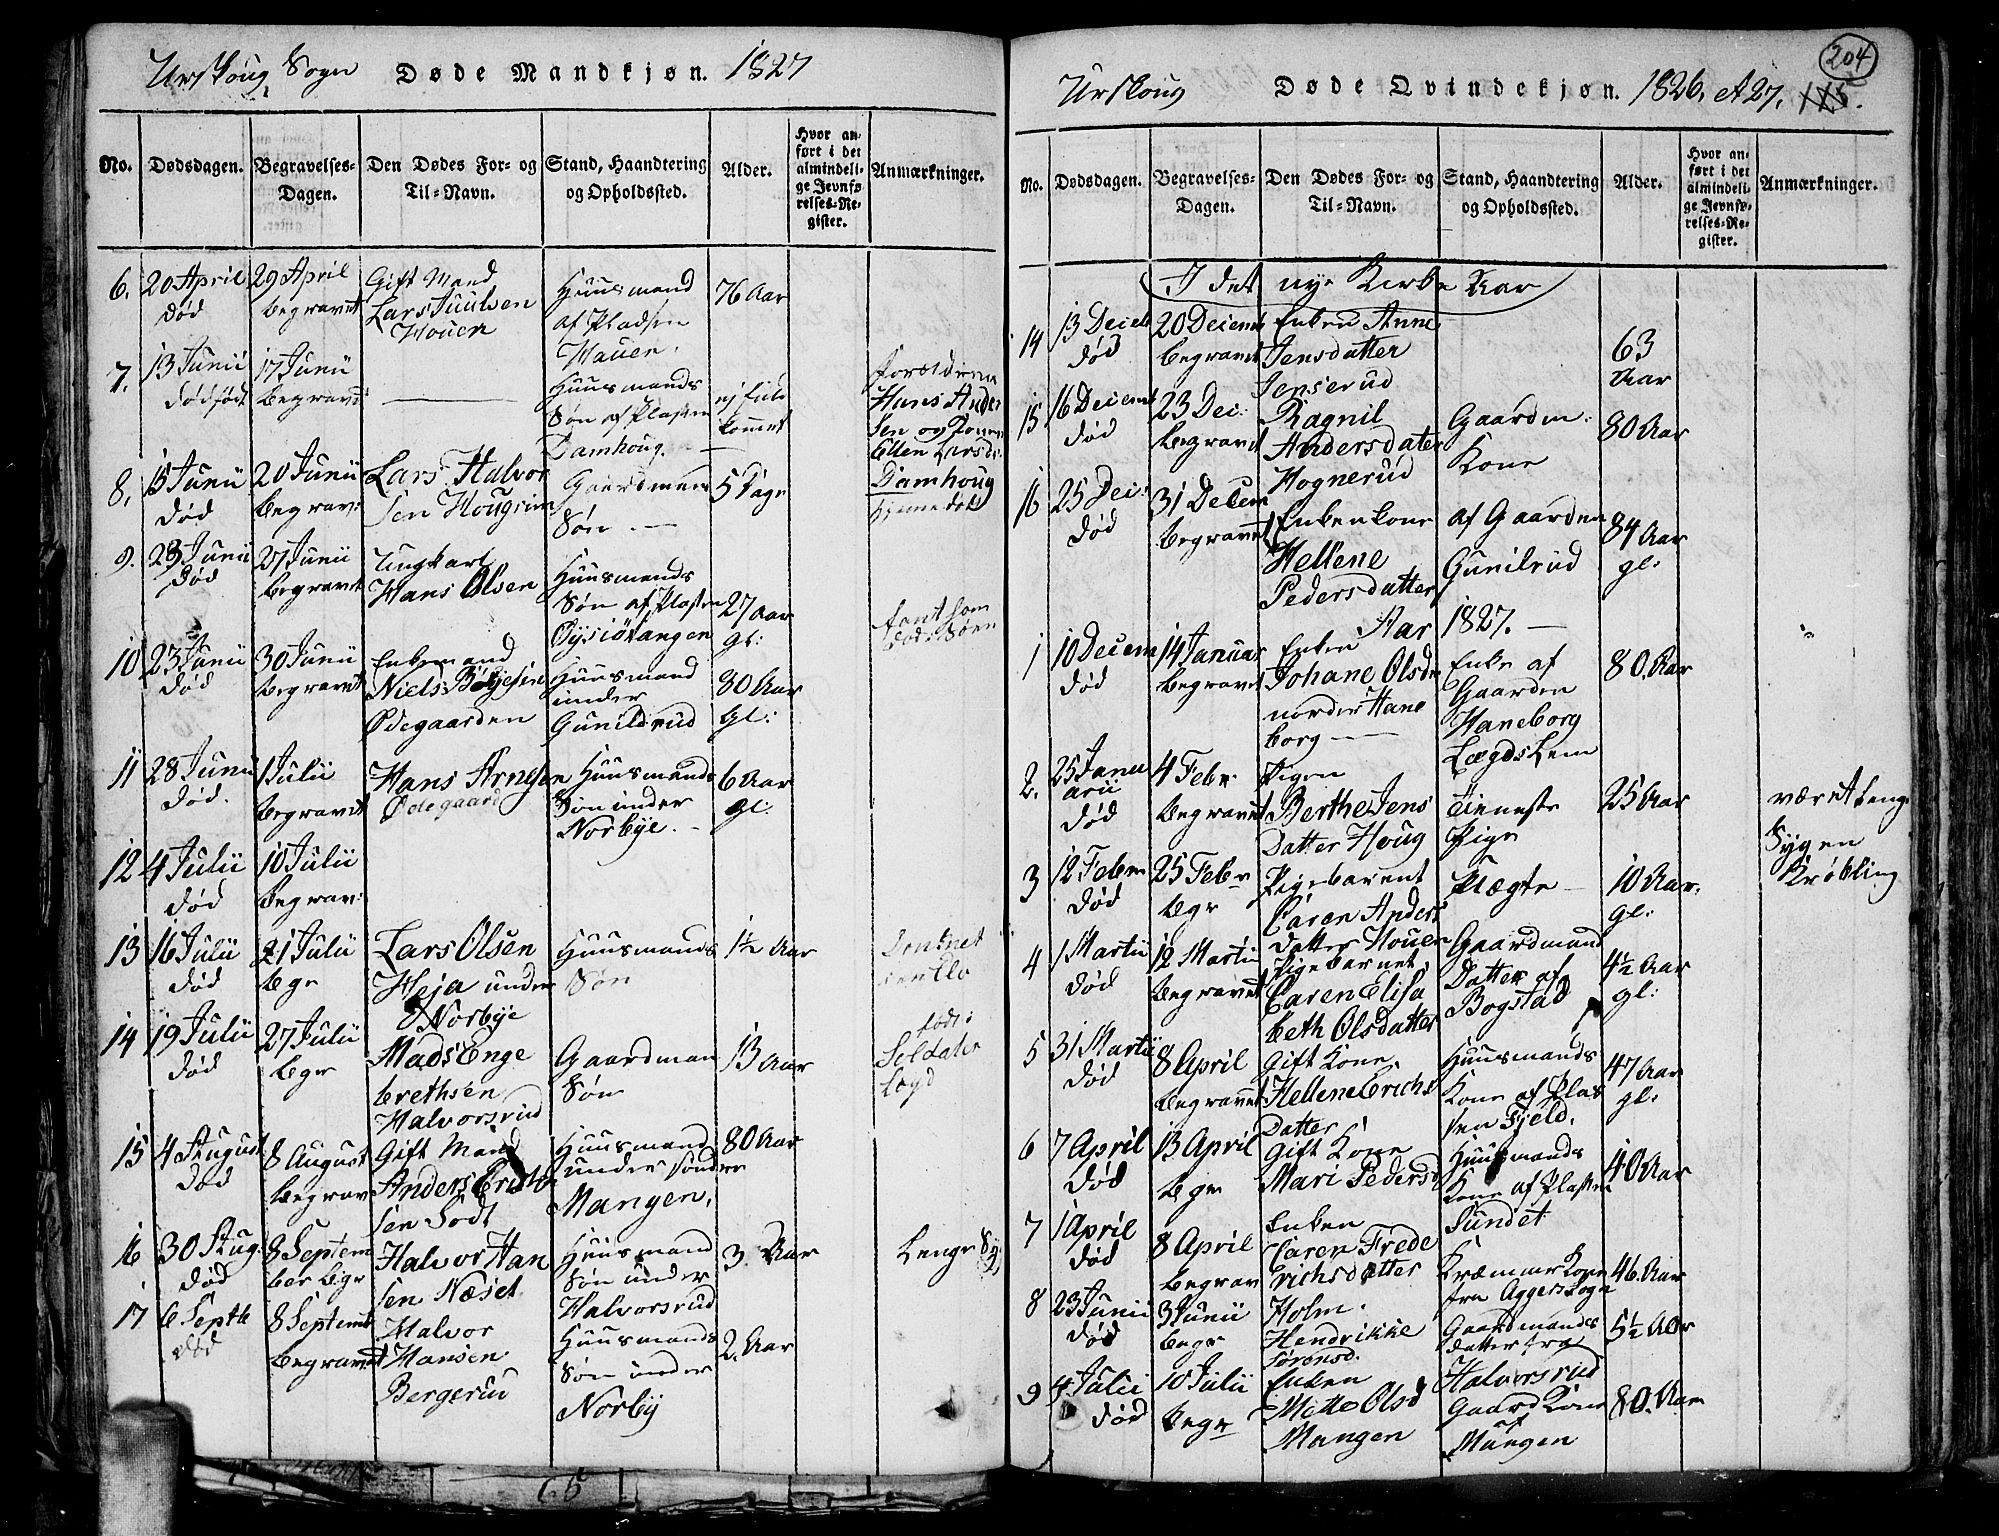 Urskoug Sogn Døde Mandkjøn. 1827
No. Dødsdagen. Begravelses-Dagen. Den Dødes For- og Til-Navn. Stand, Haandtering og Opholdssted. Alder. Hvor anført i det almindelige Jevnførelses-Register. Anmærkninger.
6. 20 April død 29 April begravet Gift Mand Lars Juulsen Houen Huusmand af Pladsen Hauen. 76 Aar
7. 13 Junii dødfødt 17 Junii begrav: Huusmands Søn af Plasen Damhoug. ej fuldkommet Forældrene Hans Andersen og Ellen Larsd: Damhoug hjemmedøbt
8. 15 Junii død 20 Junii begrav: Lars Halvorsen Gaardmans Søn 5 Dage
9. 23 Junii død 27 Junii begravet Ungkarl Hans Olsen Huusmands Søn af Plasen 27 Aar gl:
10 23 Junii død 30 Junii begravet Enkemand Niels Ødegaarden Huusmand under Gunildrud 80 Aar gl:
11 28 Junii død. 1 Julii begravet Hans Arnesen Ødegaard Huusmands Søn under Norbye. 6 Aar gl:
12 4 Julii død 10 Julii begrav:
13 16 Julii død 21 Julii begr Lars Olsen Heja under Norbye Huusmands Søn 1½ Aar
14 19 Julii død 27 Julii begr Mads Engebrethsen Halvorsrud Gaardman Søn 13 Aar
15 4 August død 8 August begrav Gift Mand Anders Huusmand under sondre Mangen, 80 Aar
16 30 Aug: død 8 September begr Halvor Hansen Næset Huusmand Søn under Halvorsrud 3. Aar
17 6 Septb død 8 Septemb begravet Halvor Hansen Bergerud Huusmands Søn under Norby 2. Aar
65
Urskoug Døde Qvindekjøn. 1826. et 27. 115.
204
No. Dødsdagen. Begravelses-Dagen. Den Dødes For- og Til-Navn. Stand, Haandtering og Opholdssted. Alder. Hvor anført i det almindelige Jevnførelses-Register. Anmærkninger.
I det nye Kirke Aar
14 13 død 20 begravet Enken Anne Jensdatter Jenserud 63 Aar
15 16 død 23 begravet Ragnil Andersdater Hognerud Gaardm: Kone 80 Aar
16 25 død 31 Decem begravet Hellene Pedersdatter af Gaarden Gunilrud 84 Aar gl:
Aar 1827. —
1 10 Decem død 14 Januar begravet Enken Johane Olsd norder Haneborg Enke af Gaarden Haneborg Lægdslem 80. Aar
2. 25 Januarii død 4 Febr. begravet Pigen Berthe Jens Datter Houg Tieneste Pige 25 Aar været lenge Syg en Krøbling
3 12 Febr død 25 Febr begr Pigebarnet Caren Anders datter Houen 10 Aar. gl:
4 1 Martii død 12 Martii begravet Pigebarnet, Caren Elisabeth Olsdatter Gaardmand Datter af Bogstad 4½ Aar gl:
5 31 Martii død 8 April begravet Gift Kone, Hellene Erichs Datter Huusmands Kone af Plasen Fjeld. 47 Aar gl:
6 7 April død 13 April begr Gift Kone Mari Pedersd Huusmands Kone af Plasen Sundet 40 Aar
7 1 April død 8 April begrav Enken Caren Frederichsdatter Holm. Kræmmer Kone fra Aggerskogn 46 Aar
8 23 Junii død 3 Junii begr Hendrikke Sørensd. Gaardmands datter fra Halvorsrud 5½ Aar
9 4 Julii død 10 Julii begr Enken Mette Olsd Mangen Gaard Kone af Mangen 80. Aar